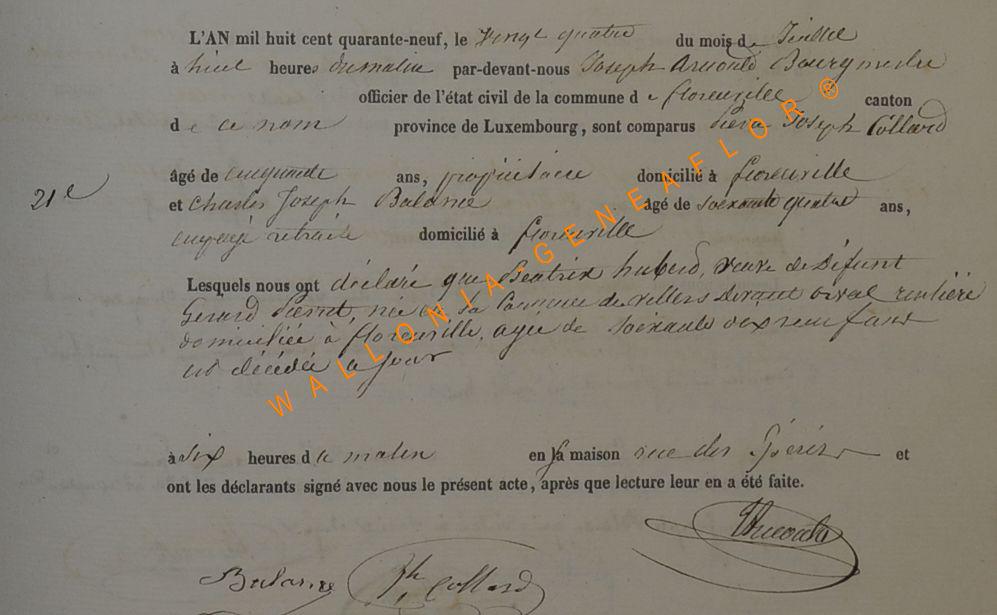 L'AN mil huit cent quarante-neuf, le vingt quatre du mois de Juillet
à huit heures du matin par-devant-nous Joseph Arnould Bourgmestre
officier de l'état civil de la commune de florenville canton
de ce nom province de Luxembourg, sont comparus Pierre Joseph Collard
âgé de cinquante ans, propriétaire domicilié à florenville
21e
et Charles Joseph Balance âgé de soixante quatre ans,
employé retraité domicilié à florenville
Lesquels nous ont déclaré que Beatrix huberd, veuve de Défunt
Gerard Pierret, née en la Commune de villers devant orval rentière
domiciliée à florenville, agée de soixante dix neuf ans
est décédée ce jour
à six heures du matin en sa maison rue des et
ont les déclarants signé avec nous le présent acte, après que lecture leur en a été faite.
JArnould
Balance Ph Collard
WALLONIA-GENEAFLOR®